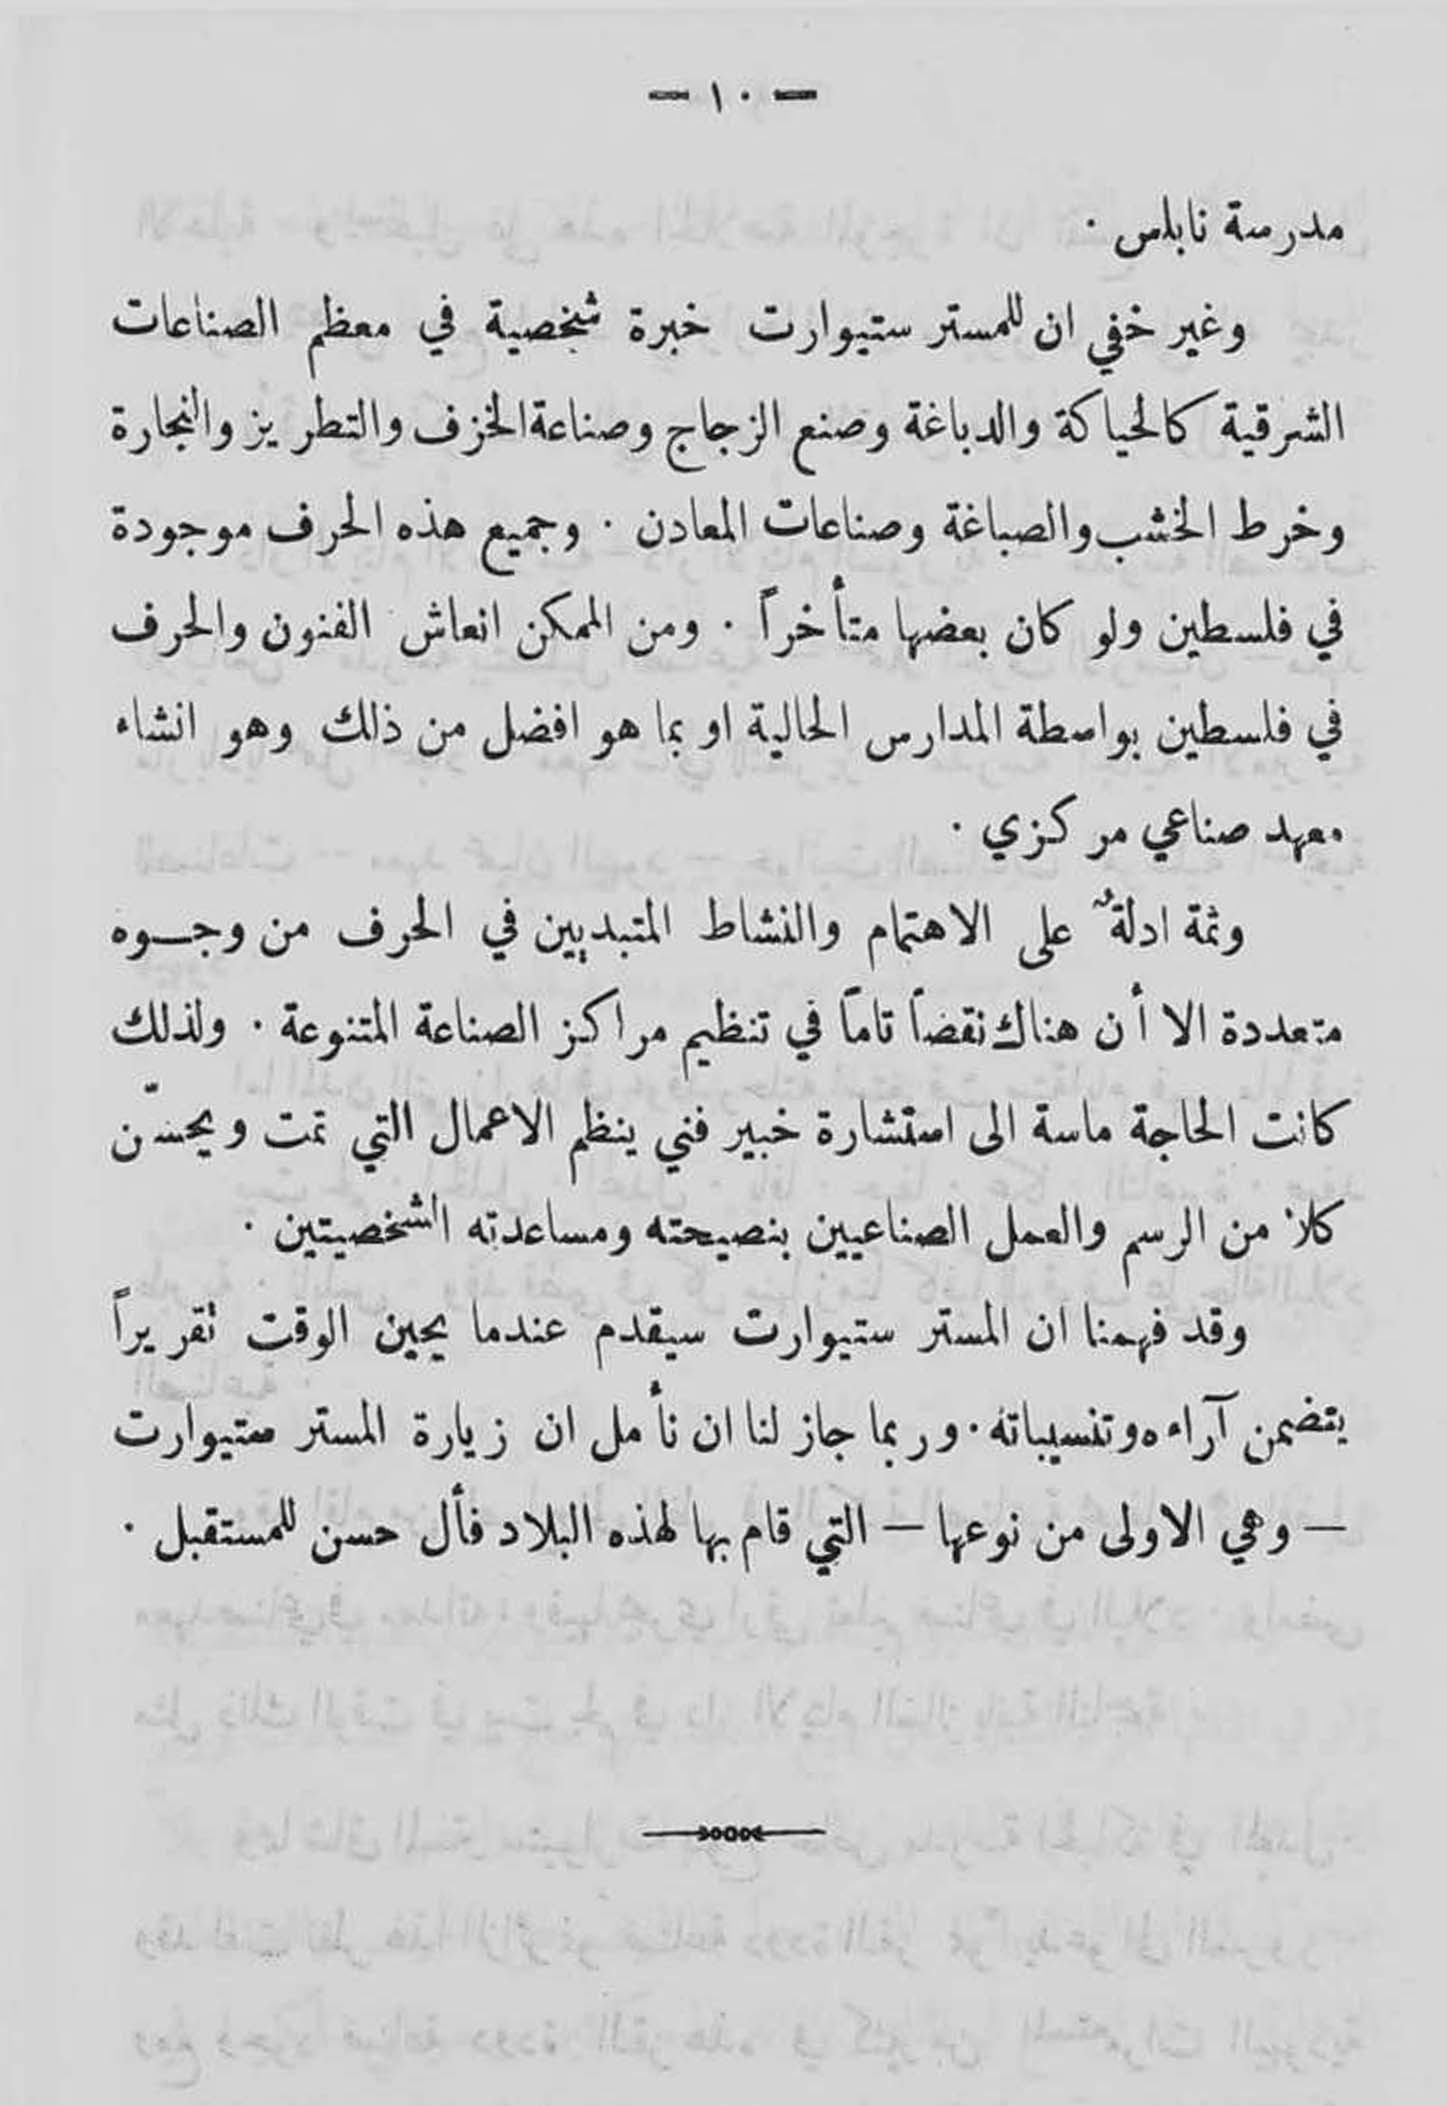 — ١٠ —
مدرسة نابلس ·
وغير خفي ان للمستر ستيوارت خبرة شخصية في معظم الصناعات
الشرقية كالحياكة والدباغة وصنع الزجاج وصناعة الخزف والتطريز والنجارة
وخرط الخشب والصباغة وصناعات المعادن · وجميع هذه الحرف موجودة
في فلسطين ولو كان بعضها متأخراً · ومن الممكن انعاش الفنون والحرف
في فلسطين بواسطة المدارس الحالية او بما هو افضل من ذلك وهو انشاء
معهد صناعي مركزي ·
وثمة ادلةٌ على الاهتمام والنشاط المتبديين في الحرف من وجوه
متعددة الا أن هناك نقضاً تاماً في تنظيم مراكز الصناعة المتنوعة · ولذلك
كانت الحاجة ماسة الى استشارة خبير فني ينظم الاعمال التي تمت ويحسّن
كلاً من الرسم والعمل الصناعيين بنصيحته ومساعدته الشخصيتين ·
وقد فهمنا ان المستر ستيوارت سيقدم عندما يحين الوقت تقريراً
يتضمن آراءه وتنسيباته · وربما جاز لنا ان نأمل ان زيارة المستر ستيوارت
— وهي الاولى من نوعها — التي قام بها لهذه البلاد فأل حسن للمستقبل ·